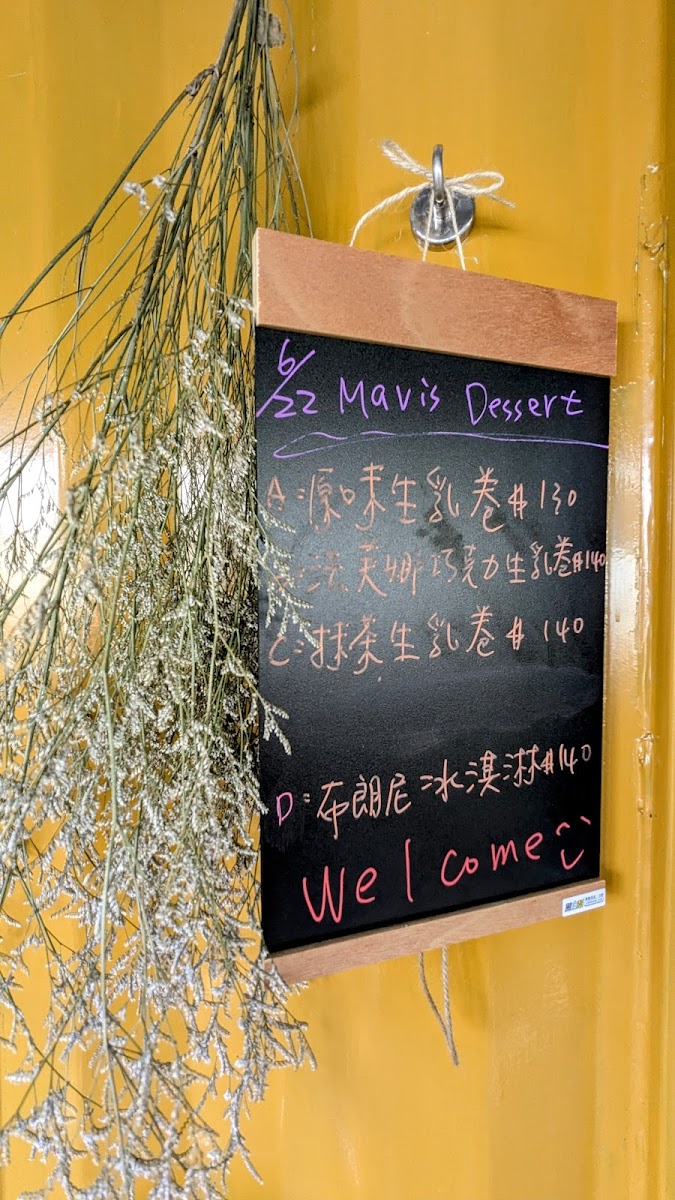 6/22 Mavis Dessert
A:原味生乳卷#130
法芙娜巧克力生乳卷#140
C:抹茶生乳卷#140
D:布朗尼冰淇淋#140
Welcome